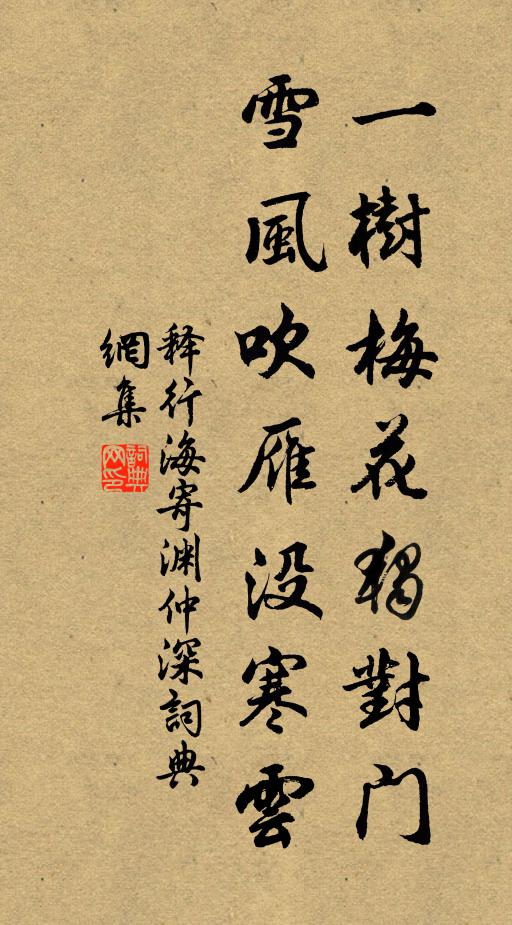 一樹梅花獨對门
雪風吹雁没寒雲
释行海寄渊仲深詞典
網集
詞典網印